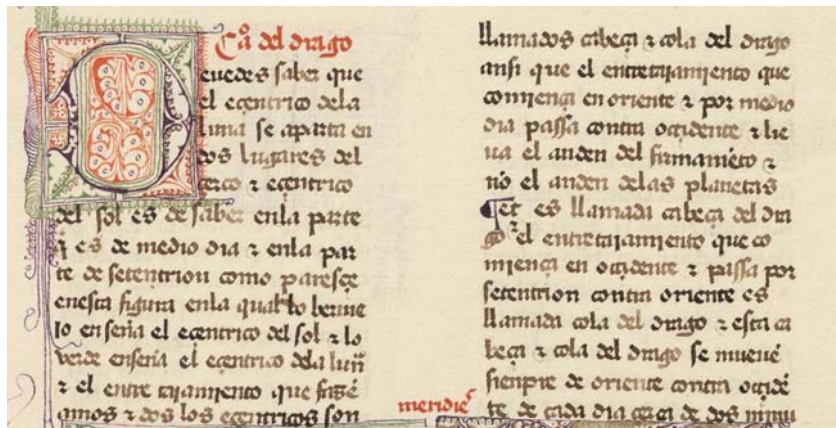 Cª del drago
Deuedes saber que
el eçentrico dela
luna se aparta en
dos lugares del
çerco z eçentrico
del sol es de saber enla parte
q̄ es de medio dia z enla par
te de setentrion como paresçe
enesta figura enla qual lo berme
io enseña el eçentrico del sol z lo
verde enseña el eçentrico dela luñ
z el entretajamiento que fazē
amos z dos los eçentricos son
meridieˢ
llamados cabeça z cola del drago
ansi que el entretajamiento que
comiença en oriente z por medio
dia passa contra oçidente z lie
ua el anden del firmamiēto z
nō el anden delas planetas
et es llamada cabeça del dra
go z el entretajamiento que co
miença en oçidente z passa por
setentrion contra oriente es
llamada cola del drago z esta ca
beça z cola del drago se mueuē
sienpre de oriente contra oçidē
te de cada dia çerca de dos minu